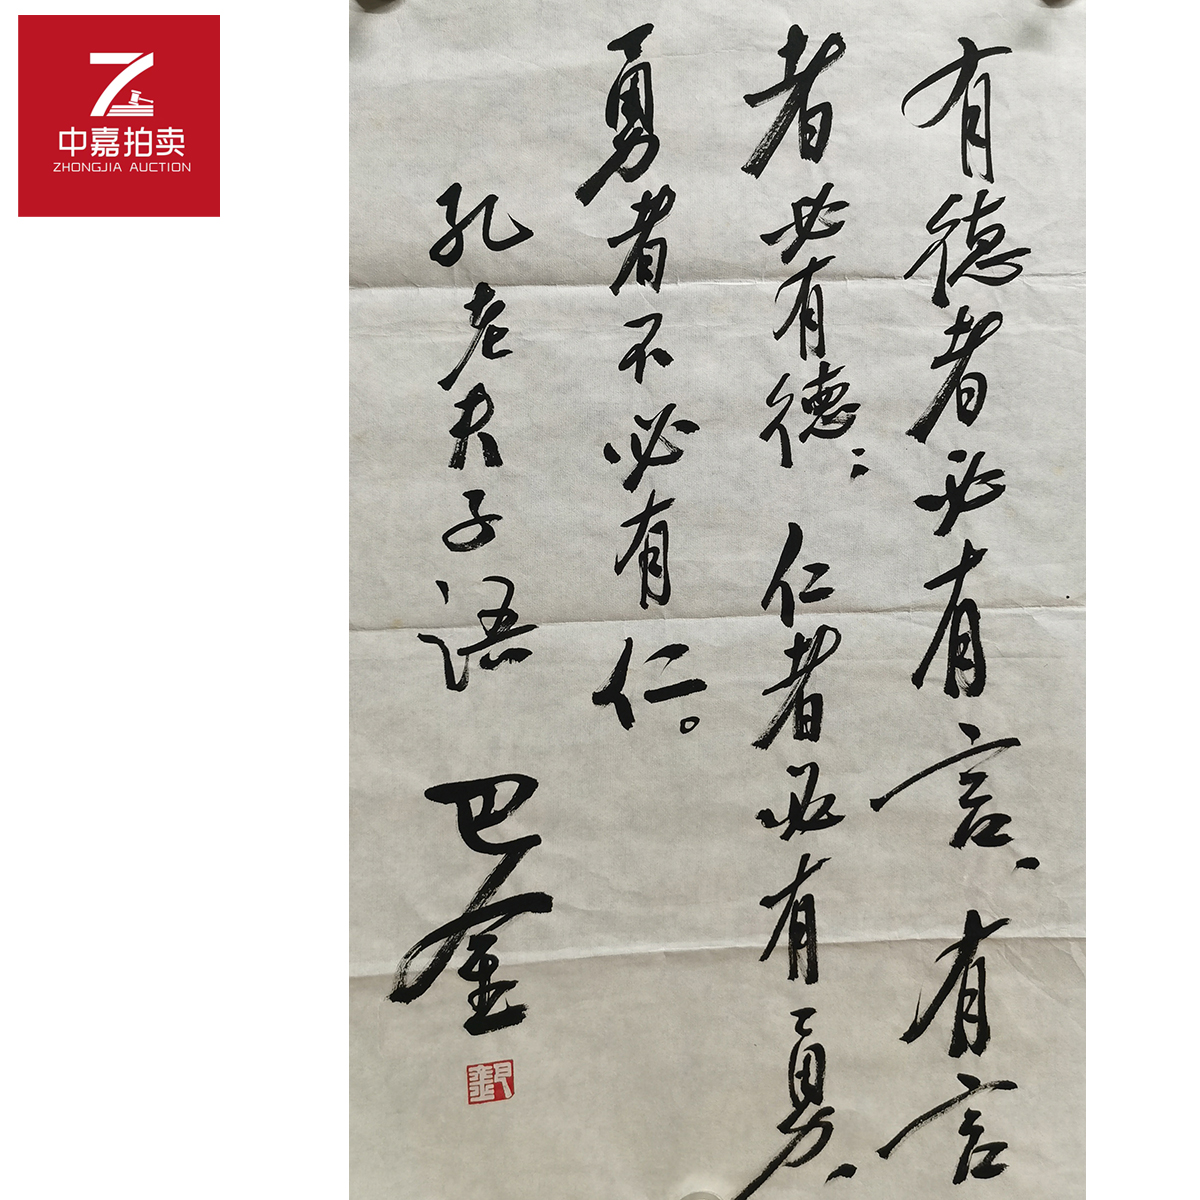 中嘉拍卖
ZHONGJIA AUCTION
有德者必有言、有言
者必有德；仁者必有勇、
勇者不必有仁。
孔老夫子语 巴金
巴金